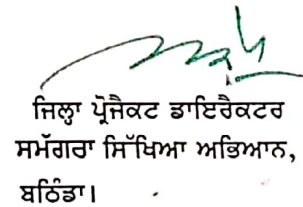 ਜਿਲ੍ਹਾ ਪ੍ਰੋਜੈਕਟ ਡਾਇਰੈਕਟਰ
ਸਮੱਗਰਾ ਸਿੱਖਿਆ ਅਭਿਆਨ,
ਬਠਿੰਡਾ।